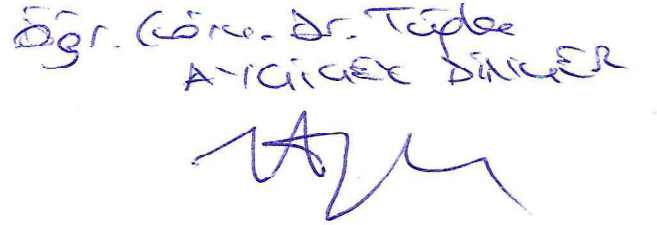 Öğr. Gör. Dr. Tuğba
AYÇİÇEK DİNÇER